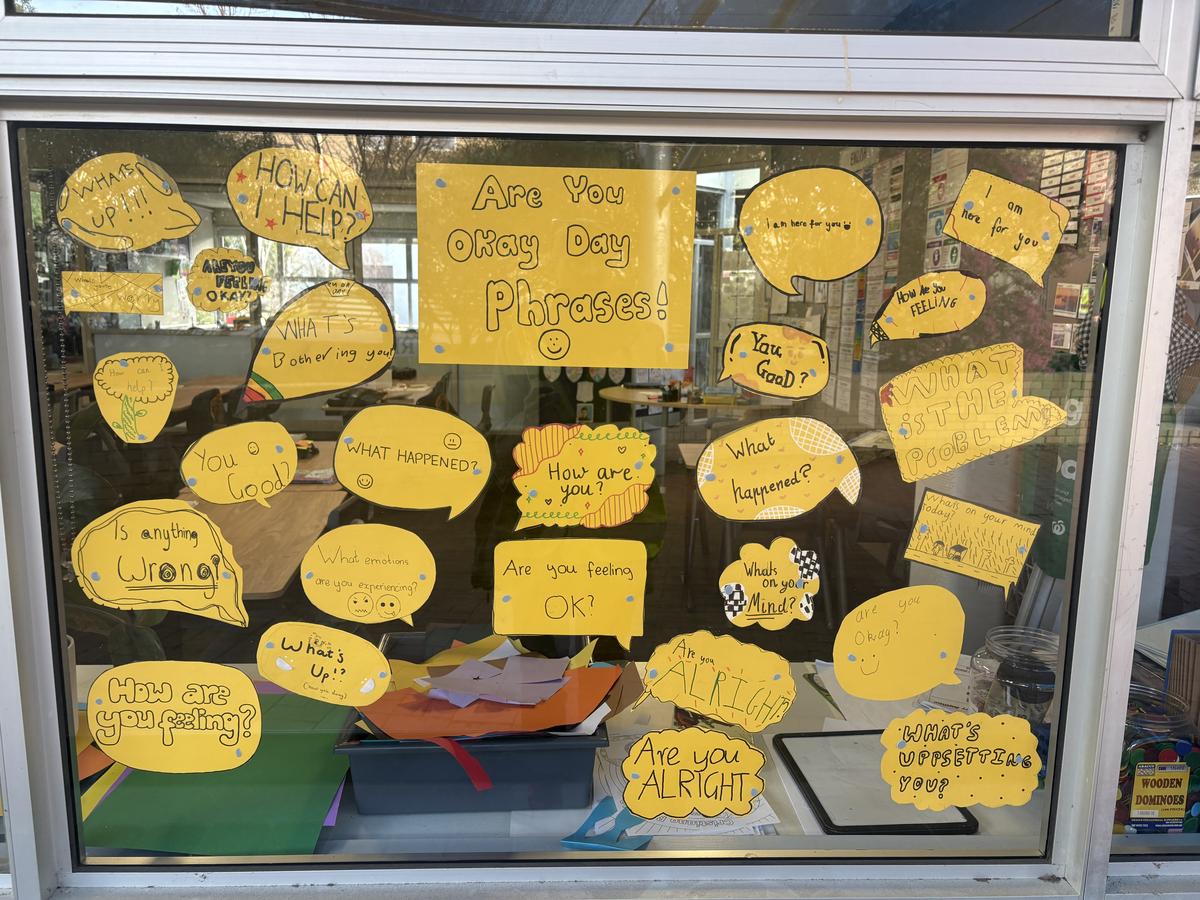 Are You
Okay Day
Phrases!
WHATS
UP!!!
HOW CAN
I HELP?
ARE YOU
FEELING
OKAY?
WHAT'S
Bothering you!
How can
help?
You
Good?
WHAT HAPPENED?
How are
you?
I am here for you
I am
here for you
HOW ARE YOU
FEELING
You
GOOD?
WHAT
iS THE
PROBLEM
What
happened?
What's on your mind
today?
Is anything
Wrong?
What emotions
are you experiencing?
Are you feeling
OK?
Whats
on your
Mind?
are you
Okay?
What's
Up!?
How are
you feeling?
Are you
ALRIGHT
Are you
ALRIGHT
WHAT'S
UPPSETTING
YOU?
WOODEN
DOMINOES